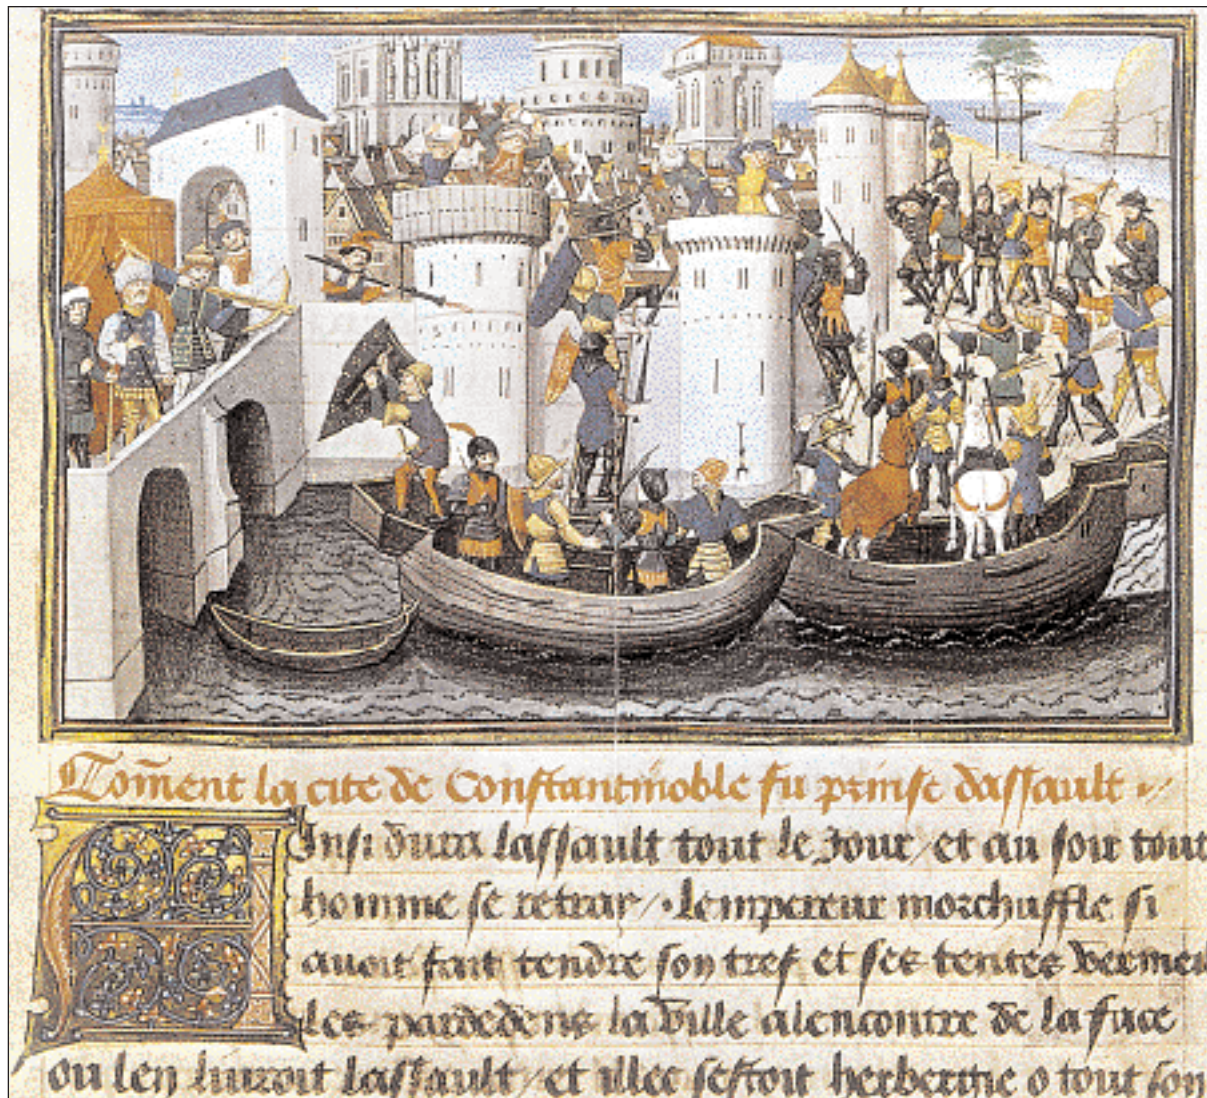 Com̄ent la cite de Constantinoble fu prinse dassault
Insi dura lassault tout le Jour / et au soir tout
homme se retray / . lempereur morchuffle si
auoit fait tendre son tref et ses tentes vermeil
les pardedens la ville alencontre de la face
ou len liuroit lassault / et illec sestoit herbergie o tout son